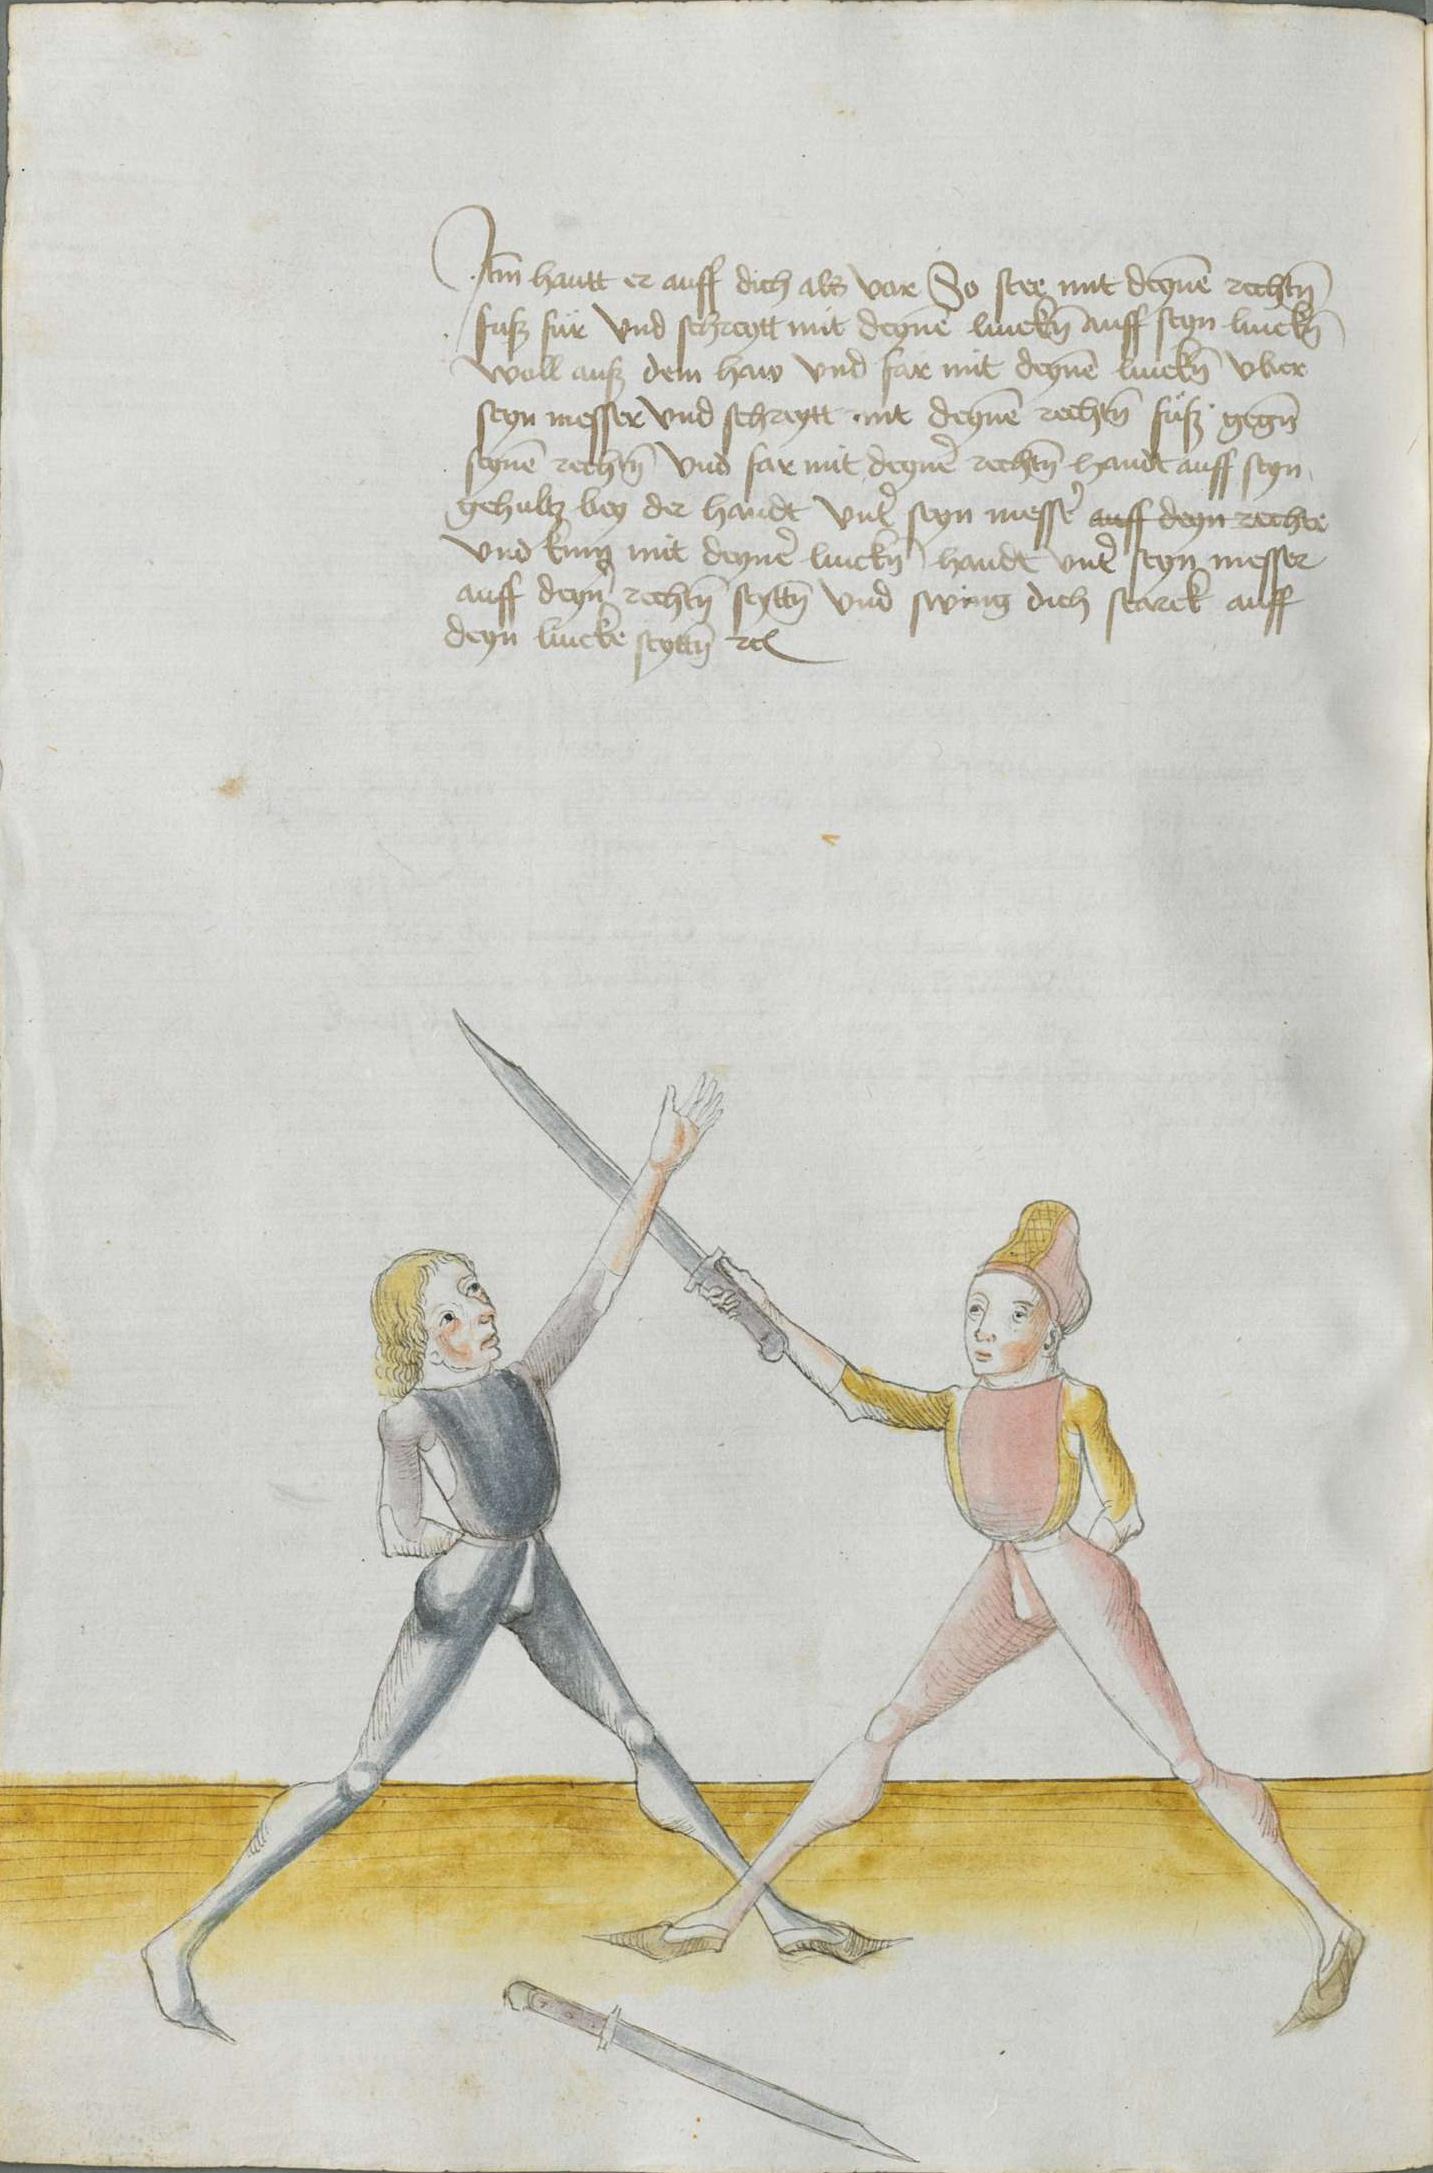 Itm̃ hautt er auff dich als vor So stee mit deynẽ rechtñ
fuß für vnd schreytt mit deynẽ linckñ auff seyn linckñ
woll auß dem haw vnd far mit deynẽ linckñ vber
seyn messer vnd schreytt mit deynẽ rechtñ fuß gegñ
seynẽ rechtñ vnd far mit deyner̃ rechtñ handt auff seyn
gehultz bey der handt vnter̃ seyn messer̃ auff deyn rechte
vnd kum mit deyner̃ linckñ handt vnter̃ seyn messer
auff deyn̄ rechtñ seyttñ vnd swing dich starck auff
deyn lincke seyttñ ꝛc